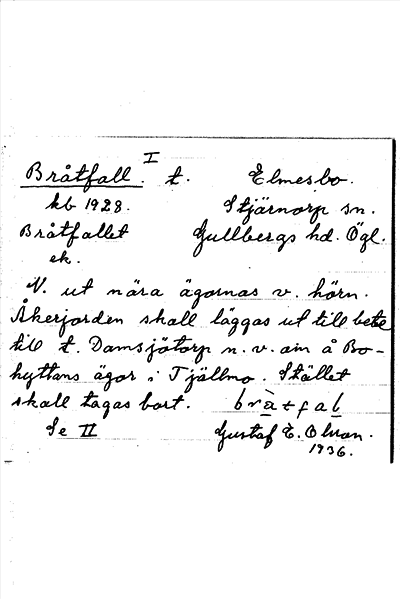 I
Bråtfall. t. Elmesbo.
kb 1928. Stjärnorp sn.
Bråtfallet Gullbergs hd. Ögl.
ek.
V. ut nära ägornas v. hörn.
Åkerjorden skall läggas ut till bete
till t. Damsjötorp n. v. om å Bo-
hyttans ägor i Tjällmo. Stället
skall tagas bort. bràtfal
Se II Gustaf E. Olsson.
1936.